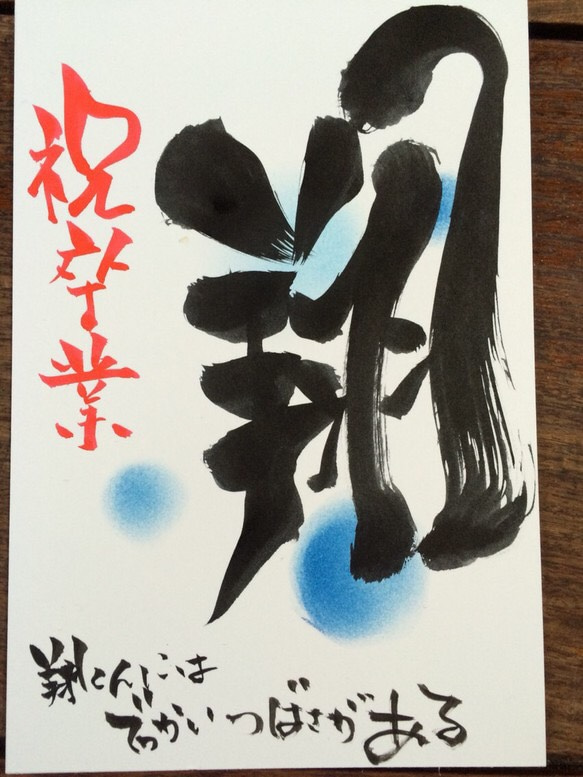 翔
祝卒業
翔くんには
でっかいつばさがある